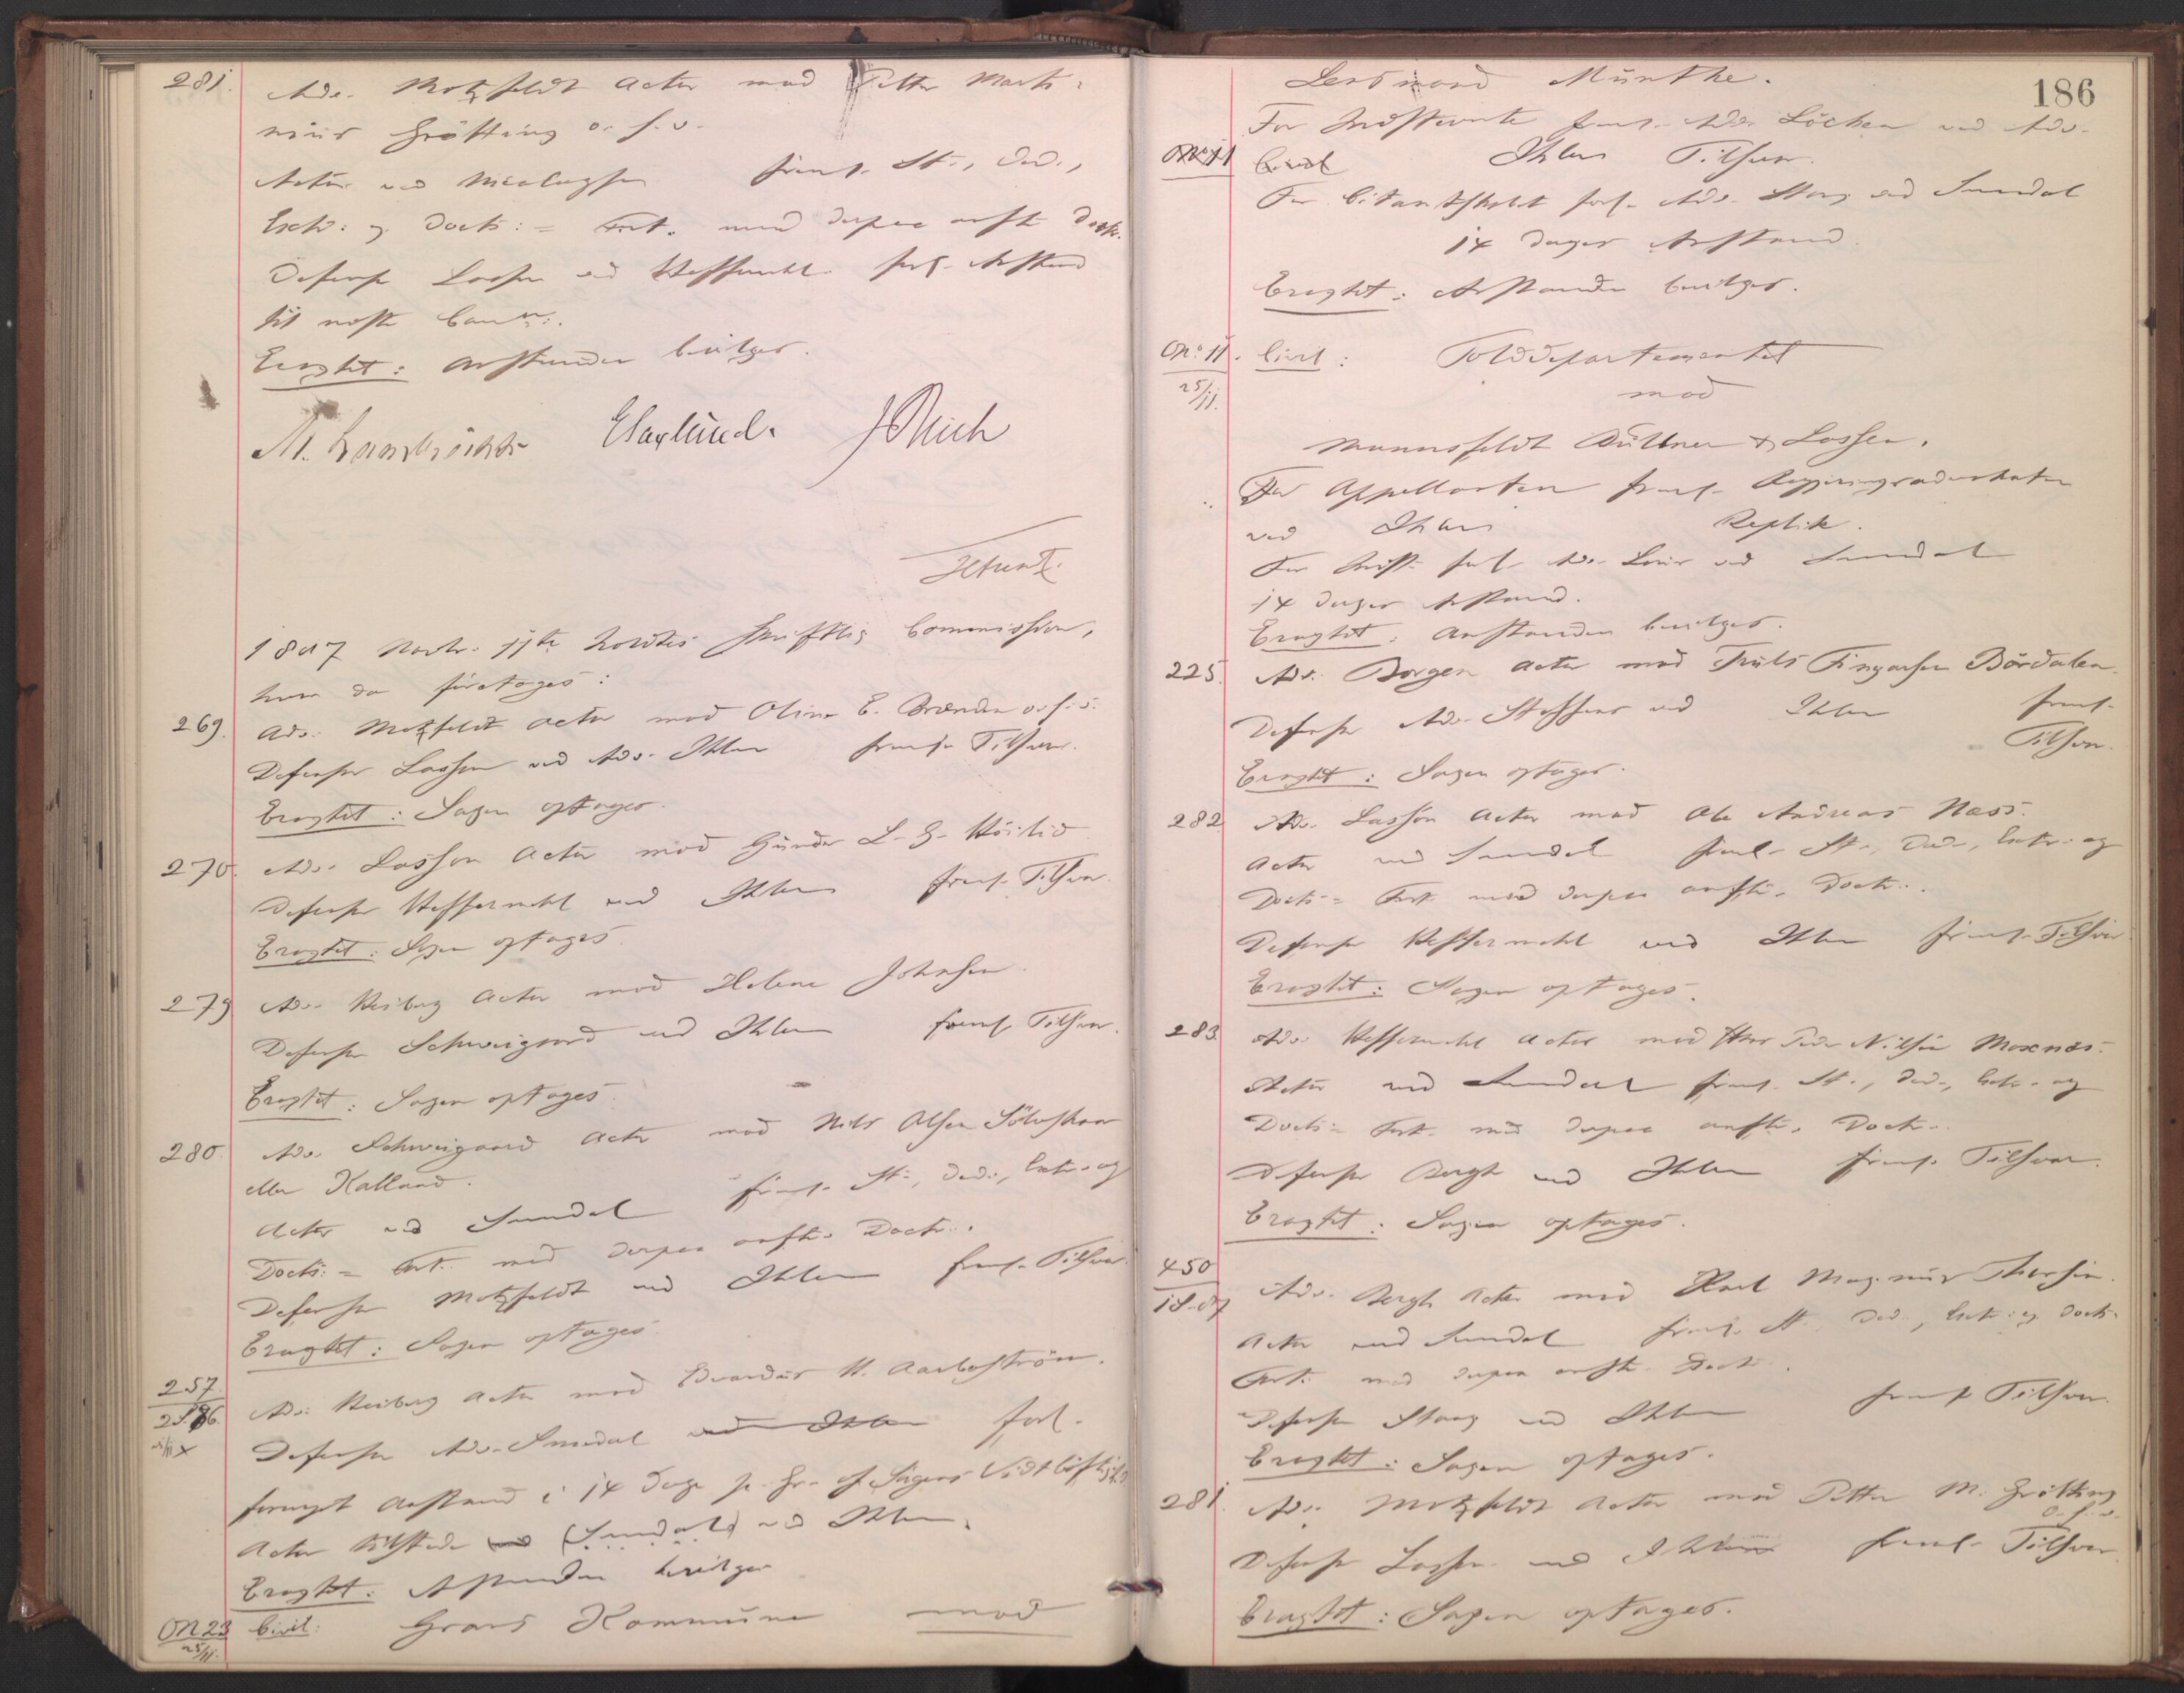 281. Adv. Motzfeldt Actor mod Petter Marti-
nius Grötting o. s. v.
Actor ved Nicolaysen freml. St., Ded.,
Extr: og Doct: = Fort. med derpaa anft. Doctr.
Defensor Lassen ved Heffermehl forl. Anstand
til næste
Eragtet: Anstanden bevilges.
Hagbund. J Reich
1897 Novbr. 11te holdtes skriftlig Commission,
hvor da foretoges:
269. Adv. Motzfeldt Actor mod Oline E. Brænden o. s. v.
Defensor Lassen ved Adv. Ihlen freml. Tilsvar.
Eragtet: Sagen optages.
270. Adv. Lasson Actor mod Gunder L. G. Höilid
Defensor Heffermehl ved Ihlen freml. Tilsvar.
Eragtet: Sagen optages
279 Adv. Heiberg Actor mod Helene Johnsen.
Defensor Schweigaard ved Ihlen freml. Tilsvar.
Eragtet: Sagen optages.
280. Adv. Schweigaard Actor mod Nils Olsen
eller Kalland.
Actor ved Smedal freml. St., Ded., Extr. og
Doctr: = Fort. med derpaa anft. Doctr.
Defensor Motzfeldt ved Ihlen freml. Tilsvar.
Eragtet: Sagen optages.
257. Adv. Heiberg Actor mod Edvardus H.
Defensor Adv. Smedal ved Ihlen forl.
fornyet Anstand i 14 Dage p. Gr. af Sagens Vidtløftighed
Actor tilstede ved (Smedal) ved Ihlen.
Eragtet: Anstanden bevilges
ON 23 Civil: Grans Kommune mod
25/11.
186
Lensmand Münthe.
For Indstevnte freml. Adv. Löchen ved Adv.
Civil Ihlen Tilsvar.
For Citantskabet forl. Adv. Stang ved Smedal
14 Dages Anstand.
Eragtet: Anstanden bevilges.
No. 11. Civil: Tolddepartementet
25/11. mod
Mannsfeldt Büllner & Lassen.
For Appellanten freml. Regjeringsadvokaten
ved Ihlen Replik.
For Indst. forl. Adv. ved Smedal
14 Dages Anstand.
Eragtet: Anstanden bevilges.
225. Adv. Borgen Actor mod Truls Fingansen Bårdalen
Defensor Adv. Steffens ved Ihlen freml.
Tilsvar.
Eragtet: Sagen optages.
282 Adv. Lasson Actor mod Ole Andreas Næss.
Actor ved Smedal freml. St., Ded., Extr. og
Doctr = Fort. med derpaa anft. Doctr.
Defensor Heffermehl ved Ihlen freml. Tilsvar.
Eragtet: Sagen optages.
283. Adv. Heffermehl Actor mod Peder Nilsen Moxnes.
Actor ved Smedal freml. St., Ded., Extr. og
Doctr = Fort. med derpaa anft. Doctr.
Defensor Bergh ved Ihlen freml. Tilsvar.
Eragtet: Sagen optages.
450 Adv. Bergh Actor mod Karl Magnus
Actor ved Smedal freml. St., Ded., Extr. og Doct.
Fort. med derpaa anft. Doct.
Defensor Stang ved Ihlen freml Tilsvar.
Eragtet: Sagen optages.
281. Adv. Motzfeldt Actor mod Petter M. Grötting
o. s. v.
Defensor Lassen ved Ihlen freml. Tilsvar
Eragtet: Sagen optages.